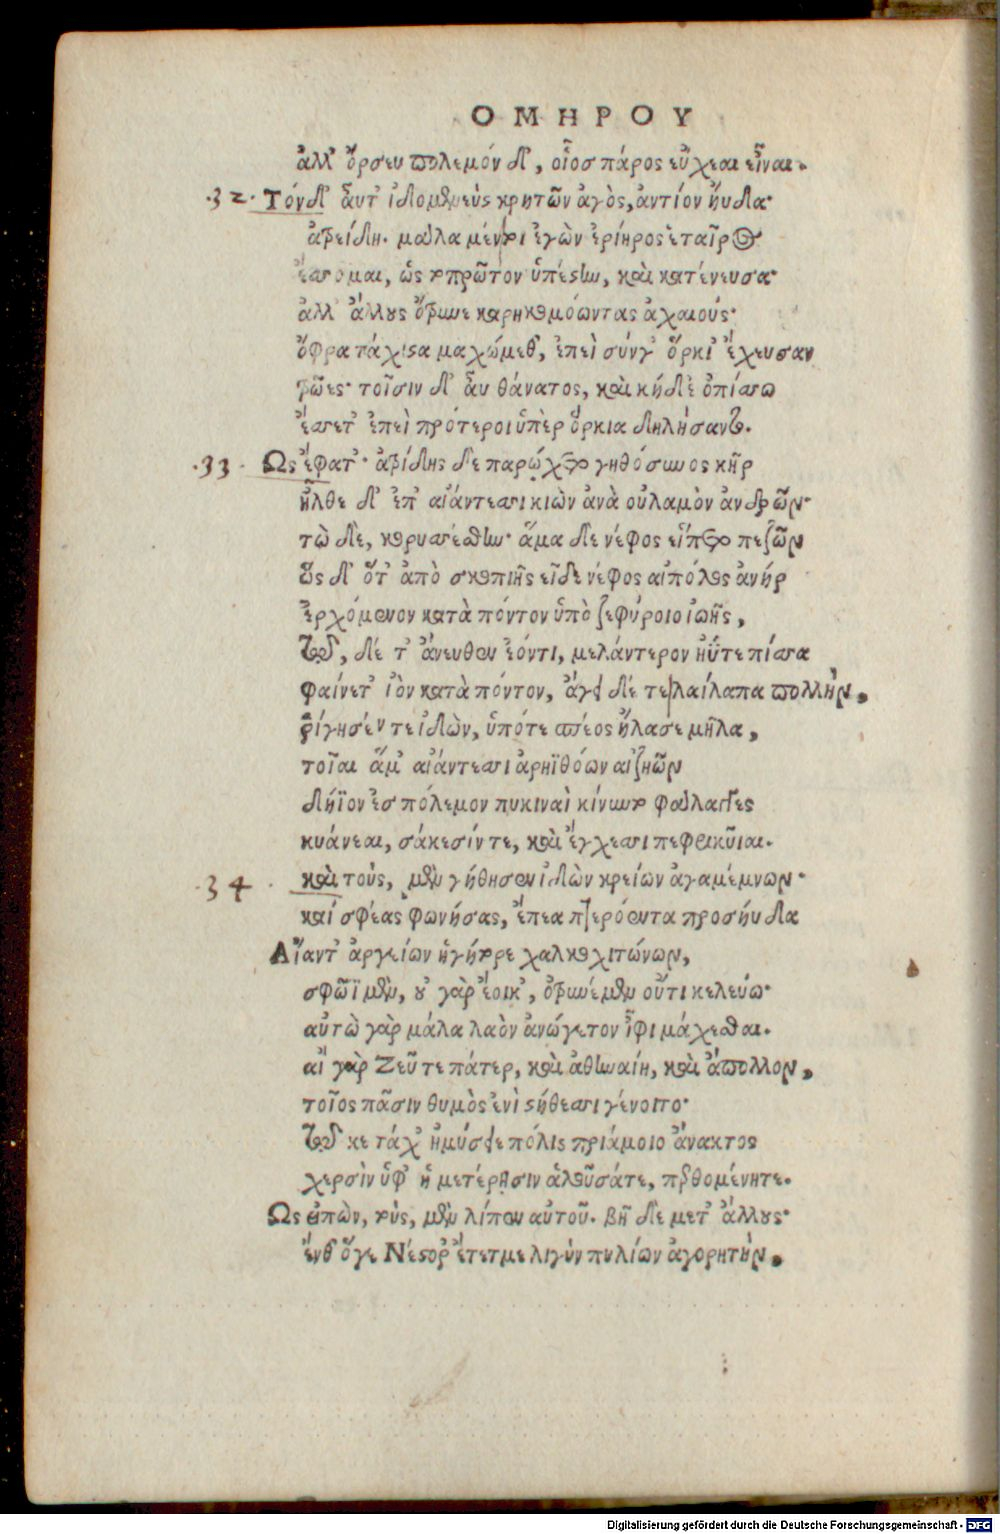 ΟΜΗΡΟΥ
ἀλλ' ὄρσευ πολεμόν δ', οἷος πάρος εὔχεαι εἶναι.
.32. Τόνδ' αὖτ' ἰδομενεὺς κρητῶν ἀγὸς, ἀντίον ηὔδα·
ἀτρείδη. μάλα μέν τοι ἐγὼν ἐρίηρος ἑταῖρος
ἔσσομαι, ὡς τοπρῶτον ὑπέστην, καὶ κατένευσα·
ἀλλ' ἄλλους ὄτρυνε καρηκομόωντας ἀχαιούς·
ὄφρα τάχιστα μαχώμεθ', ἐπεὶ σύνγ' ὅρκι' ἔχευσαν
τρῶες· τοῖσιν δ' αὖ θάνατος, καὶ κήδε' ὀπίσσω
ἔσσετ' ἐπεὶ πρότεροι ὑπὲρ ὅρκια δηλήσαντο.
.33. Ὣς ἔφατ'· ἀτρείδης δὲ παρώχετο γηθόσυνος κῆρ
ἦλθε δ' ἐπ' αἰάντεσσι κιὼν ἀνὰ οὐλαμὸν ἀνδρῶν·
τὼ δὲ, κορυσσέσθην· ἅμα δὲ νέφος εἵπετο πεζῶν
ὡς δ' ὅτ' ἀπὸ σκοπιῆς εἶδε νέφος αἰπόλος ἀνήρ
ἐρχόμενον κατὰ πόντον ὑπὸ ζεφύροιο ἰωῆς,
τῷ, δέ τ' ἄνευθεν ἐόντι, μελάντερον ἠΰτε πίσσα
φαίνετ' ἰὸν κατὰ πόντον, ἄγει δέ τε λαίλαπα πολλήν,
ῥίγησέν τε ἰδὼν, ὑπό τε σπέος ἤλασε μῆλα,
τοῖαι ἅμ' αἰάντεσσι ἀρηϊθόων αἰζηῶν
δήϊον ἐς πόλεμον πυκιναὶ κίνυντο φάλαγγες
κυάνεαι, σάκεσίν τε, καὶ ἔγχεσσι πεφρικυῖαι.
.34. καὶ τοὺς, μὲν γήθησεν ἰδὼν κρείων ἀγαμέμνων·
καί σφέας φωνήσας, ἔπεα πτερόεντα προσηύδα
Αἴαντ' ἀργείων ἡγήτορε χαλκοχιτώνων,
σφῶϊ μὲν, οὐ γὰρ ἔοικ', ὀτρυνέμεν οὔτι κελεύω·
αὐτὼ γὰρ μάλα λαὸν ἀνώγετον ἶφι μάχεσθαι.
αἲ γὰρ Ζεῦ τε πάτερ, καὶ ἀθηναίη, καὶ ἄπολλον,
τοῖος πᾶσιν θυμὸς ἐνὶ στήθεσσι γένοιτο·
τῷ κε τάχ' ἠμύσειε πόλις πριάμοιο ἄνακτος
χερσὶν ὑφ' ἡμετέρῃσιν ἁλοῦσάτε, περθομένητε.
Ὣς εἰπὼν, τοὺς, μὲν λίπεν αὐτοῦ. βῆ δὲ μετ' ἄλλους·
ἔνθ' ὅγε Νέστορ' ἔτετμε λιγὺν πυλίων ἀγορητήν,
Digitalisierung gefördert durch die Deutsche Forschungsgemeinschaft - DFG